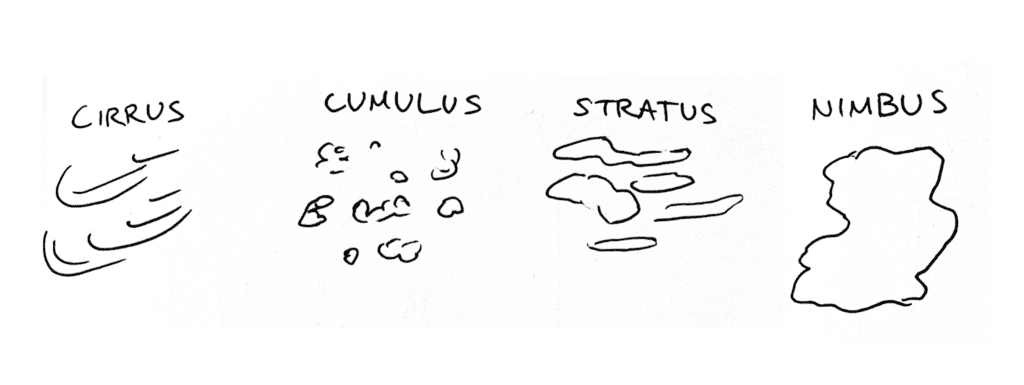 CIRRUS
CUMULUS
STRATUS
NIMBUS